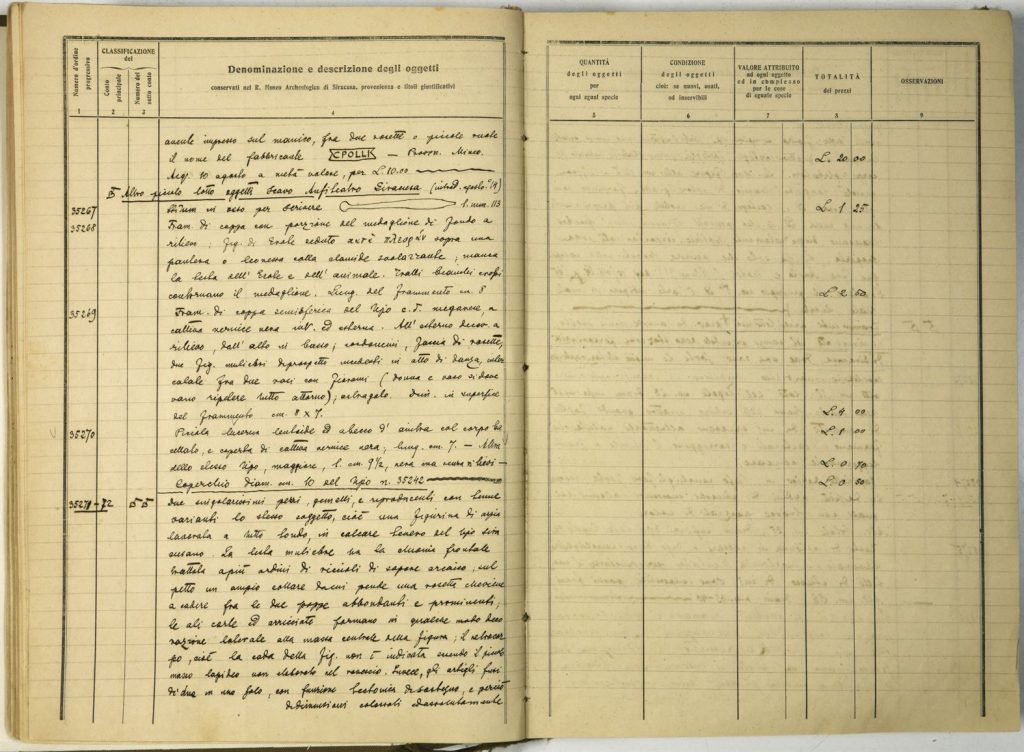 Numero d'ordine progressivo
CLASSIFICAZIONE del
Conto principale
Numero del sotto conto
Denominazione e descrizione degli oggetti
conservati nel R. Museo Archeologico di Siracusa, provenienza e titoli giustificativi
1 2 3 4
QUANTITÀ degli oggetti per ogni egual specie
CONDIZIONE degli oggetti cioè: se nuovi, usati, od inservibili
VALORE ATTRIBUITO ad ogni oggetto ed in complesso per le cose di eguale specie
TOTALITÀ dei prezzi
OSSERVAZIONI
5 6 7 8 9
impresso sul manico, fra due rosette o piccole ruote
il nome del fabbricante CPOLLI — Proven. Mineo.
Acq. 10 agosto a metà valore, per £ 10.00
L. 20 00
Altro piccolo lotto oggetti scavo Anfiteatro Siracusa
35267 in osso per scrivere l. mm. 113
L. 1 25
35268 Fram. di coppa con porzione del medaglione di fondo a
rilievo; fig. di Erole seduto sopra una
pantera o leonessa colla clamide svolazzante; manca
la testa dell' Erole e dell' animale. Tralci
contornano il medaglione. Lung. del frammento cm. 8
L. 2 50
35269 Fram. di coppa semisferica del tipo c. d. megarese, a
cattiva vernice nera int. ed esterna. All' esterno decor. a
rilievo, dall' alto in basso; cordoncini, fascia di rosette,
due fig. muliebri di prospetto incedenti in atto di danza, inter
calate fra due vasi con fiorami (donna e vaso si dove
vano ripetere tutto attorno); astragalo. Dim. in superficie
del frammento cm. 8 x 7.
L. 4 00
35270 Piccola lucerna lenticolare
coperta di cattiva vernice nera; lung. cm. 7. — Altra
L. 1 00
dello stesso tipo, maggiore, l. cm. 9½, nera ma senza rilievi —
L. 0 70
Coperchio diam. cm. 10 del tipo n. 35242
L. 0 50
35271-72 Due singolarissimi pezzi, gemelli, e riproducenti con lievi
varianti lo stesso soggetto, cioè una figurina di arpia
lavorata a tutto tondo, in calcare tenero del tipo sira
cusano. La testa muliebre ha la chioma frontale
trattata a più ordini di riccioli di sapore arcaico; sul
petto un ampio collare da cui pende una rosetta che viene
a cadere fra le due poppe abbondanti e prominenti;
le ali corte ed arricciate formano in qualche modo deco
razione laterale alla massa centrale della figura; il retrocor
po, cioè la coda della fig. non è indicata essendo il piccolo
masso lapideo non elaborato nel rovescio. Invece, gli artigli fusi
di due in uno solo, con funzione tectonica di sostegno, e perciò
di dimensioni colossali